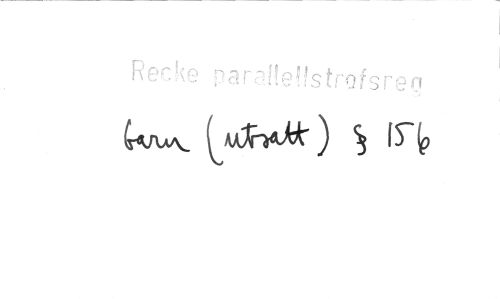 Recke parallellstrofsreg
barn (utsatt) § 156